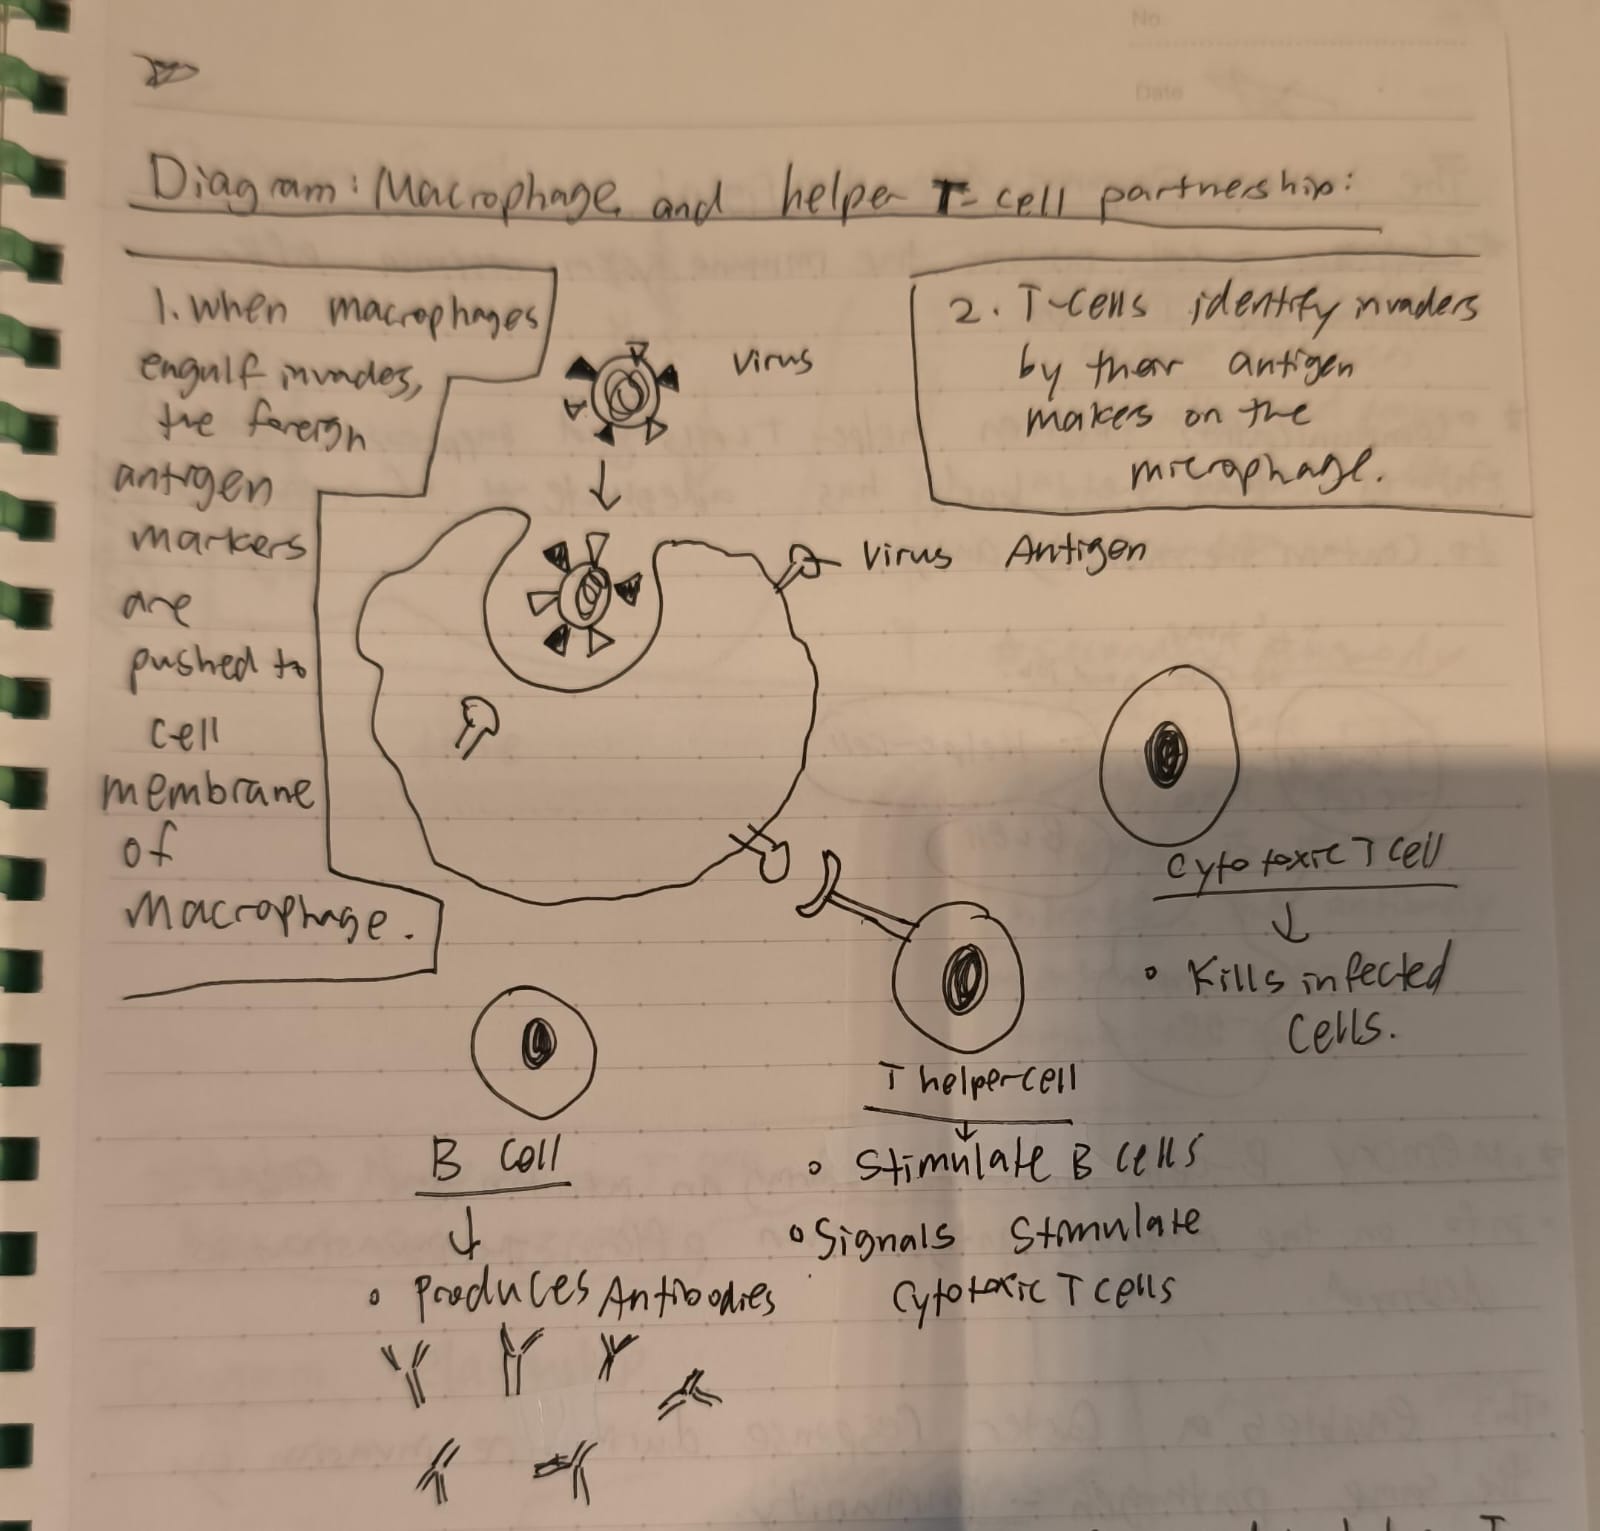 No.
Date
Diagram: Macrophage and helper T-cell partnership:
1. When macrophages
engulf invades,
the foreign
antigen
markers
are
pushed to
cell
membrane
of
Macrophage.
Virus
2. T-Cells identify invaders
by their antigen
makers on the
microphage.
Virus Antigen
Cytotoxic T cell
• Kills infected
cells.
T helper-cell
• Stimulate B cells
• Signals Stimulate
Cytotoxic T cells
B Cell
• Produces Antibodies